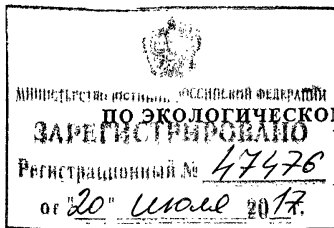 МИНИСТЕРСТВО ЮСТИЦИИ РОССИЙСКОЙ ФЕДЕРАЦИИ
ПО ЭКОЛОГИЧЕСКО
ЗАРЕГИСТРИРОВАНО
Регистрационный № 47476
от "20" июля 2017.